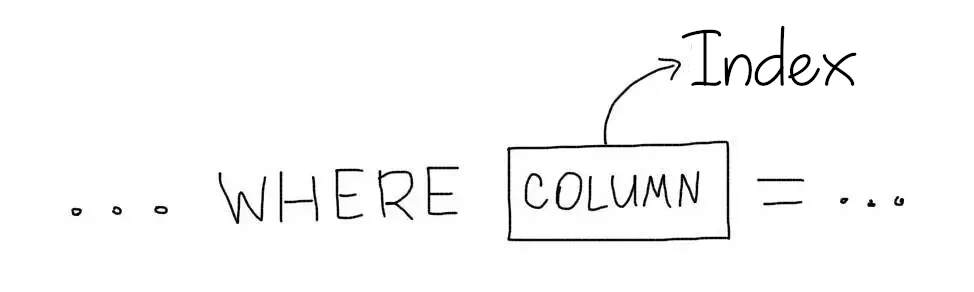 Index
... WHERE COLUMN = ...